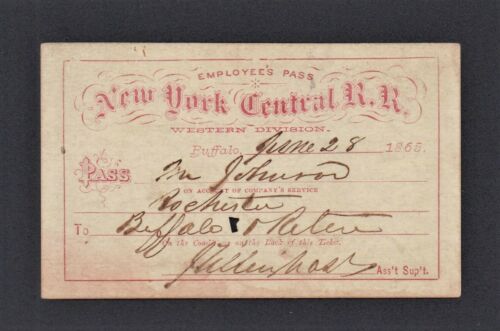 EMPLOYEE'S PASS
New York Central R.R.
WESTERN DIVISION.
Buffalo, June 28 1865.
PASS Mr Johnson
ON ACCOUNT OF COMPANY'S SERVICE
Rochester
To Buffalo & Return
On the Conditions on the Back of this Ticket.
Ass't Sup't.